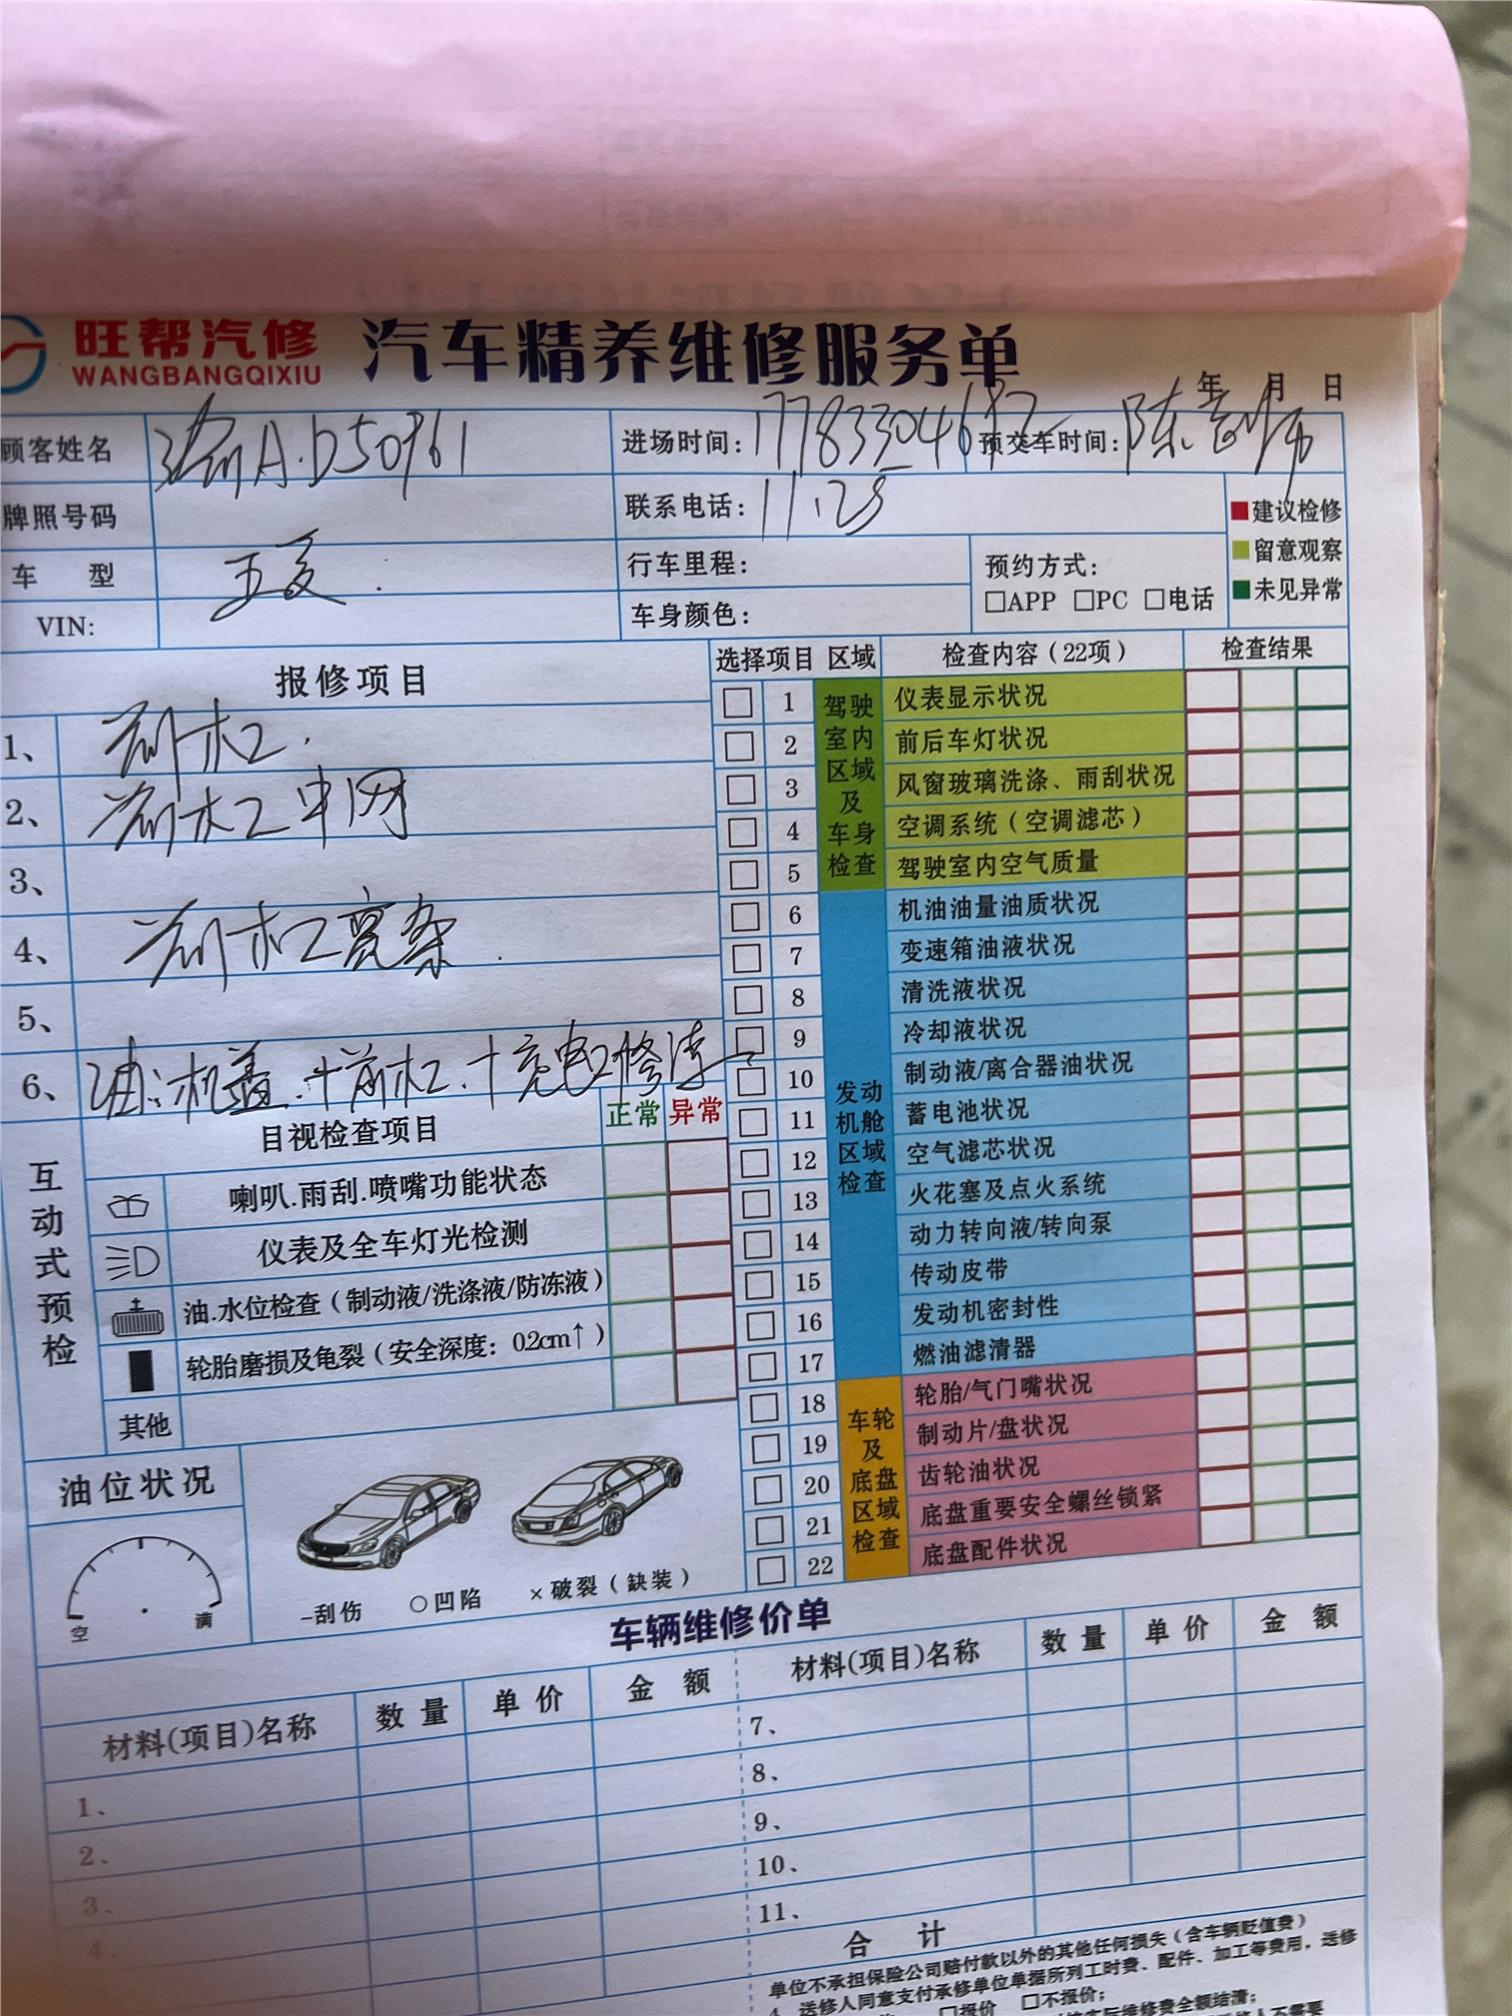 旺帮汽修
WANGBANGQIXIU
汽车精养维修服务单
年 月 日
顾客姓名 渝A·D50961 进场时间: 预交车时间: 陈
牌照号码 联系电话: 11.28
建议检修
留意观察
未见异常
车 型 行车里程: 预约方式:
□APP □PC □电话
VIN: 车身颜色:
报修项目
1、前杠.
2、前杠中网
3、
4、前杠亮条.
5、
6、油:机盖.+前杠.+充电口修汽
选择项目 区域 检查内容(22项) 检查结果
驾驶室内区域及车身检查
1 仪表显示状况
2 前后车灯状况
3 风窗玻璃洗涤、雨刮状况
4 空调系统(空调滤芯)
5 驾驶室内空气质量
发动机舱区域检查
6 机油油量油质状况
7 变速箱油液状况
8 清洗液状况
9 冷却液状况
10 制动液/离合器油状况
11 蓄电池状况
12 空气滤芯状况
13 火花塞及点火系统
14 动力转向液/转向泵
15 传动皮带
16 发动机密封性
17 燃油滤清器
车轮及底盘区域检查
18 轮胎/气门嘴状况
19 制动片/盘状况
20 齿轮油状况
21 底盘重要安全螺丝锁紧
22 底盘配件状况
互动式预检
目视检查项目 正常 异常
喇叭.雨刮.喷嘴功能状态
仪表及全车灯光检测
油.水位检查(制动液/洗涤液/防冻液)
轮胎磨损及龟裂(安全深度: 0.2cm↑)
其他
油位状况
空 满
-刮伤 ○凹陷 ×破裂(缺装)
车辆维修价单
材料(项目)名称 数量 单价 金额 材料(项目)名称 数量 单价 金额
1、 7、
2、 8、
3、 9、
4、 10、
11、
合计
单位不承担保险公司赔付款以外的其他任何损失(含车辆贬值费)
4、送修人同意支付承修单位单据所列工时费、配件、加工等费用,送修
□报价 □不报价;
实际维修费全额结清;